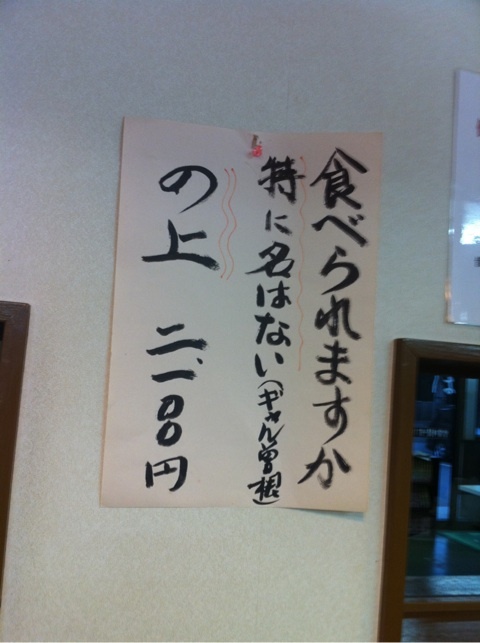 食べられますか
特に名はない(ギャル曽根)
の上 二、一〇〇円